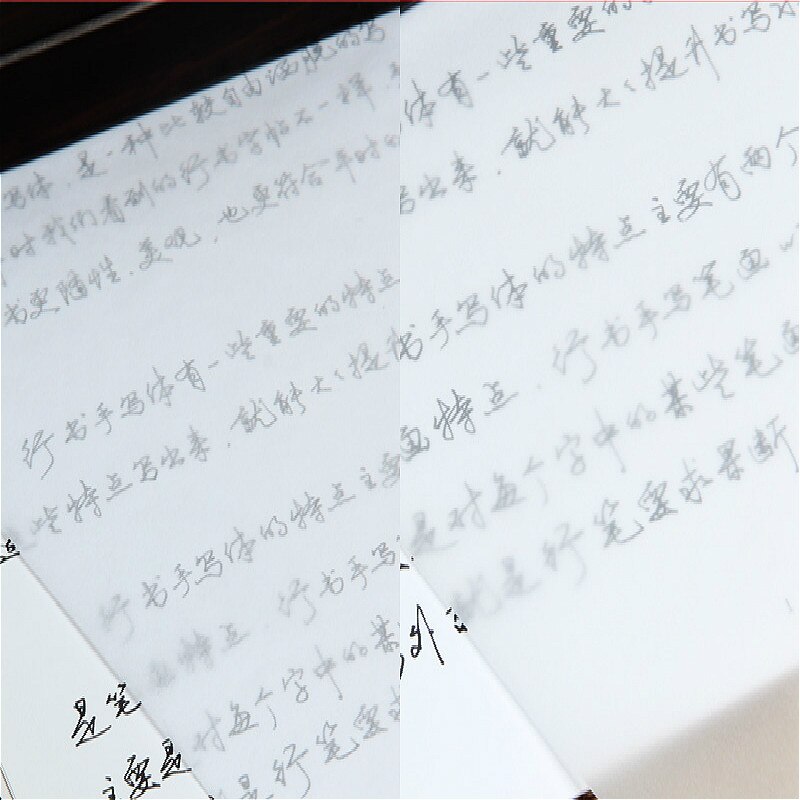 是一种比较自由洒脱的写
写体，是一种
时我们看到的行书字帖不一样，
书更随性、美观，也更符合平时的
行书手写体有一些重要的特点
些特点写出来，就能大大提升
行书手写体的特点主要
画特点，行书手写
对每个字中的某
是行笔要求
是笔
主要是
体有一些重要的
写出来，就能大大提升书写水
书手写体的特点主要有两个
画特点，行书手写笔画
是对每个字中的某些笔画
就是行笔要求果断
外